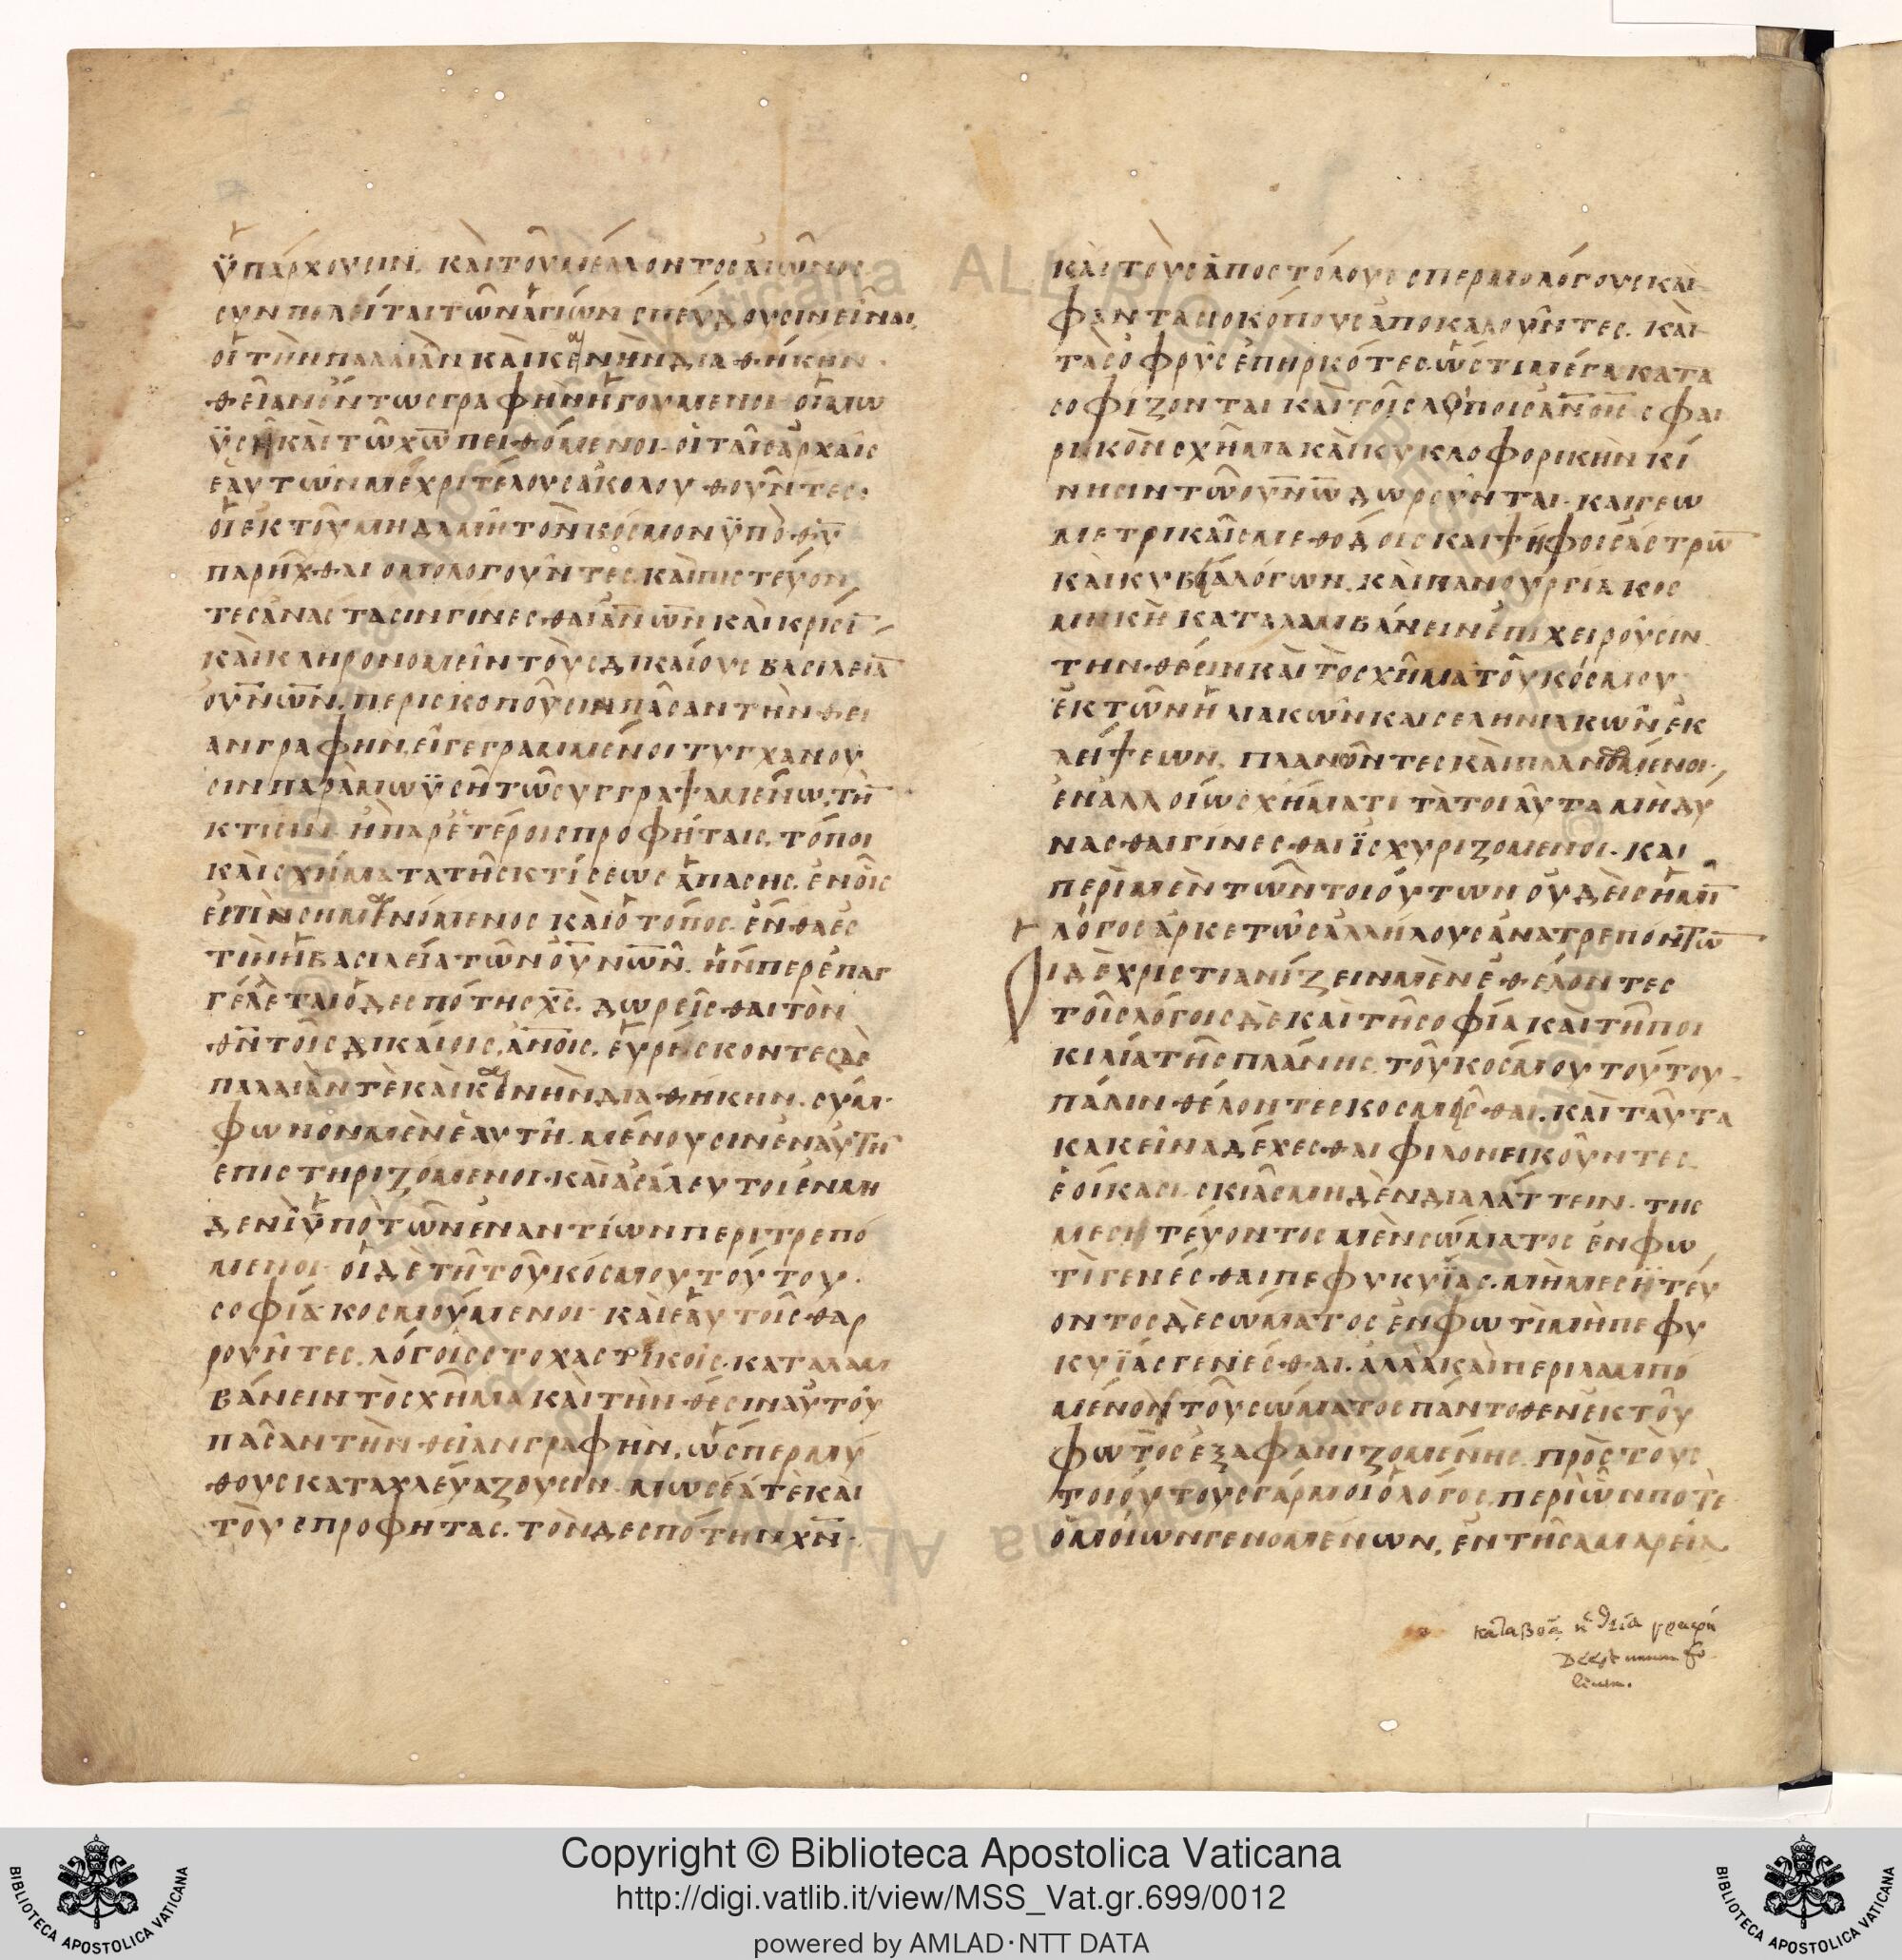 ὑπάρχουσιν. καὶ τοῦ μέλλοντος αἰῶνος
συνπολῖται τῶν ἁγίων σπεύδουσιν εἶναι.
οἱ τὴν παλαιὰν καὶ κενὴν διαθήκην
θείαν ὄντως γραφὴν ἡγούμενοι· οἱ μω
ϋσῆ καὶ τῷ χῶ πειθόμενοι· οἱ ταῖς ἀρχαῖς
ἑαυτῶν μέχρι τέλους ἀκολουθοῦντες·
οἱ ἐκ τοῦ μηδαμῆ τὸν κόσμον ὑπὸ θυ
παρῆχθαι ὁμολογοῦντες. καὶ πιστεύον
τες ἀνάστασιν γίνεσθαι ἀνων καὶ κρίσι
καὶ κληρονομεῖν τοὺς δικαίους βασιλεία
οὐνῶν. περισκοποῦσιν πᾶσαν τὴν θεί
αν γραφήν. εἰ γεγραμμένοι τυγχάνου
σιν παρὰ μωϋσῆ τῷ συγγραψαμένω τὴ
κτίσιν. ἢ παρ' ἑτέροις προφήταις. τόποι
καὶ σχήματα τῆς κτίσεως ἁπάσης. ἐν οἷς
ἐστὶν σημαινόμενος καὶ ὁ τόπος. ἔνθα ἐσ
τὶν ἡ βασιλεία τῶν οὐνῶν. ἥνπερ ἐπαγ
γέλεται ὁ δεσπότης χς. δωρεῖσθαι τὸν
θν τοῖς δικαίοις ἀνοις. εὑρήσκοντες δὲ
παλαιάν τε καὶ καινὴν διαθήκην. σύμ
φωνον μὲν ἑαυτῇ. μένουσιν ἐν αὐτῇ
ἐπιστηριζόμενοι. καὶ ἀσάλευτοι ἐν μη
δενὶ ὑπὸ τῶν ἐναντίων περιτρεπό
μενοι· οἱ δὲ τῇ τοῦ κόσμου τούτου
σοφία κοσμούμενοι καὶ ἑαυτοῖς θαρ
ροῦντες. λόγοις στοχαστικοῖς. καταλαμ
βάνειν τὸ σχῆμα καὶ τὴν θέσιν αὐτοῦ
πᾶσαν τὴν θείαν γραφὴν, ὥσπερ μύ
θους καταχλευάζουσιν. μωσέα τὲ καὶ
τοὺς προφήτας. τὸν δεσπότην χν
καὶ τοὺς ἀποστόλους σπερμολόγους καὶ
φαντασιοκόπους ἀποκαλοῦντες. καὶ
τὰς ὀφρῦς ἐπηρκότες. ὥς τι μέγα κατα
σοφίζονται καὶ τοῖς λοιποῖς ἀνοις σφαι
ρικὸν σχῆμα καὶ κυκλοφορικὴν κί
νησιν τῷ οὐνῶ δωροῦνται. καὶ γεω
μετρικαῖς μεθόδοις καὶ ψήφοις ἄστρω
καὶ κυβία λόγων. καὶ πανουργία κοσ
μικῇ καταλαμβάνειν ἐπιχειροῦσιν
τὴν θέσιν καὶ τὸ σχῆμα τοῦ κόσμου
ἐκ τῶν ἡλιακῶν καὶ σεληνιακῶν ἐκ
λείψεων. πλανῶντες καὶ πλανώμενοι,
ἐν ἀλλοίω σχήματι τὰ τοιαῦτα μὴ δύ
νασθαι γίνεσθαι ἰσχυριζόμενοι. καὶ
περὶ μὲν τῶν τοιούτων οὐδεὶς ἡμῖ
λόγος. ἀρκετῶς ἀλλήλους ἀνατρεπόντω
Οἱ δὲ χριστιανίζειν μὲν ἐθέλοντες
τοῖς λόγοις δὲ καὶ τῇ σοφία καὶ τῇ ποι
κιλία τῆς πλάνης τοῦ κόσμου τούτου
πάλιν θέλοντες κοσμεῖσθαι. καὶ ταῦτα
κακεῖνα δέχεσθαι φιλονεικοῦντες
ἐοίκασι σκιᾶς μηδὲν διαλάττειν. τῆς
μεσητεύοντος μὲν σώματος ἐν φω
τὶ γενέσθαι πεφυκυΐας. μὴ μεσητεύ
οντος δὲ σώματος ἐν φωτὶ μὴ πεφυ
κυΐας γενέσθαι. ἀλλὰ καὶ περιλαμπο
μένου τοῦ σώματος πάντοθεν ἐκ τοῦ
φωτὸς ἐξαφανιζομένης. πρὸς τοὺς
τοιούτους γάρ μοι ὁ λόγος. περὶ ὧν ποτε
ὁμοίων γενομένων, ἐν τῇ σαμαρεία
καταβοᾷ ἡ θεία γραφή
Deest unum fo
lium.
Copyright © Biblioteca Apostolica Vaticana
http://digi.vatlib.it/view/MSS_Vat.gr.699/0012
powered by AMLAD·NTT DATA
BIBLIOTECA APOSTOLICA VATICANA
BIBLIOTECA APOSTOLICA VATICANA